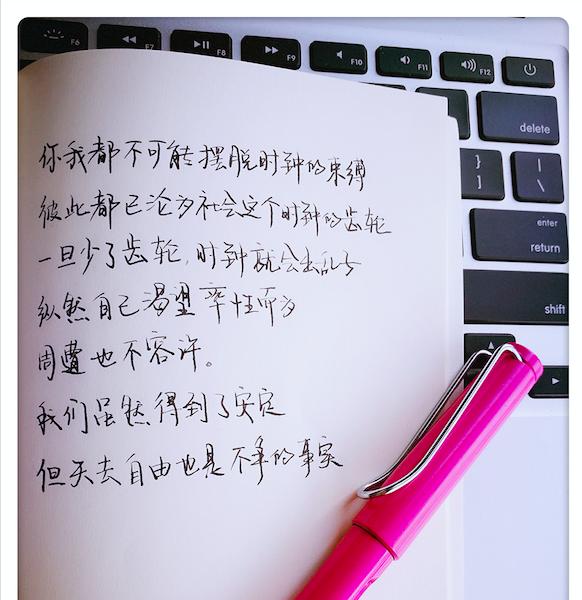 F6
F7
F8
F9
F10
F11
F12
delete
}
]
|
\
enter
return
shift
你我都不可能摆脱时钟的束缚
彼此都已沦为社会这个时钟的齿轮
一旦少了齿轮,时钟就会出乱子
纵然自己渴望率性而为
周遭也不容许。
我们虽然得到了安定
但失去自由也是不争的事实